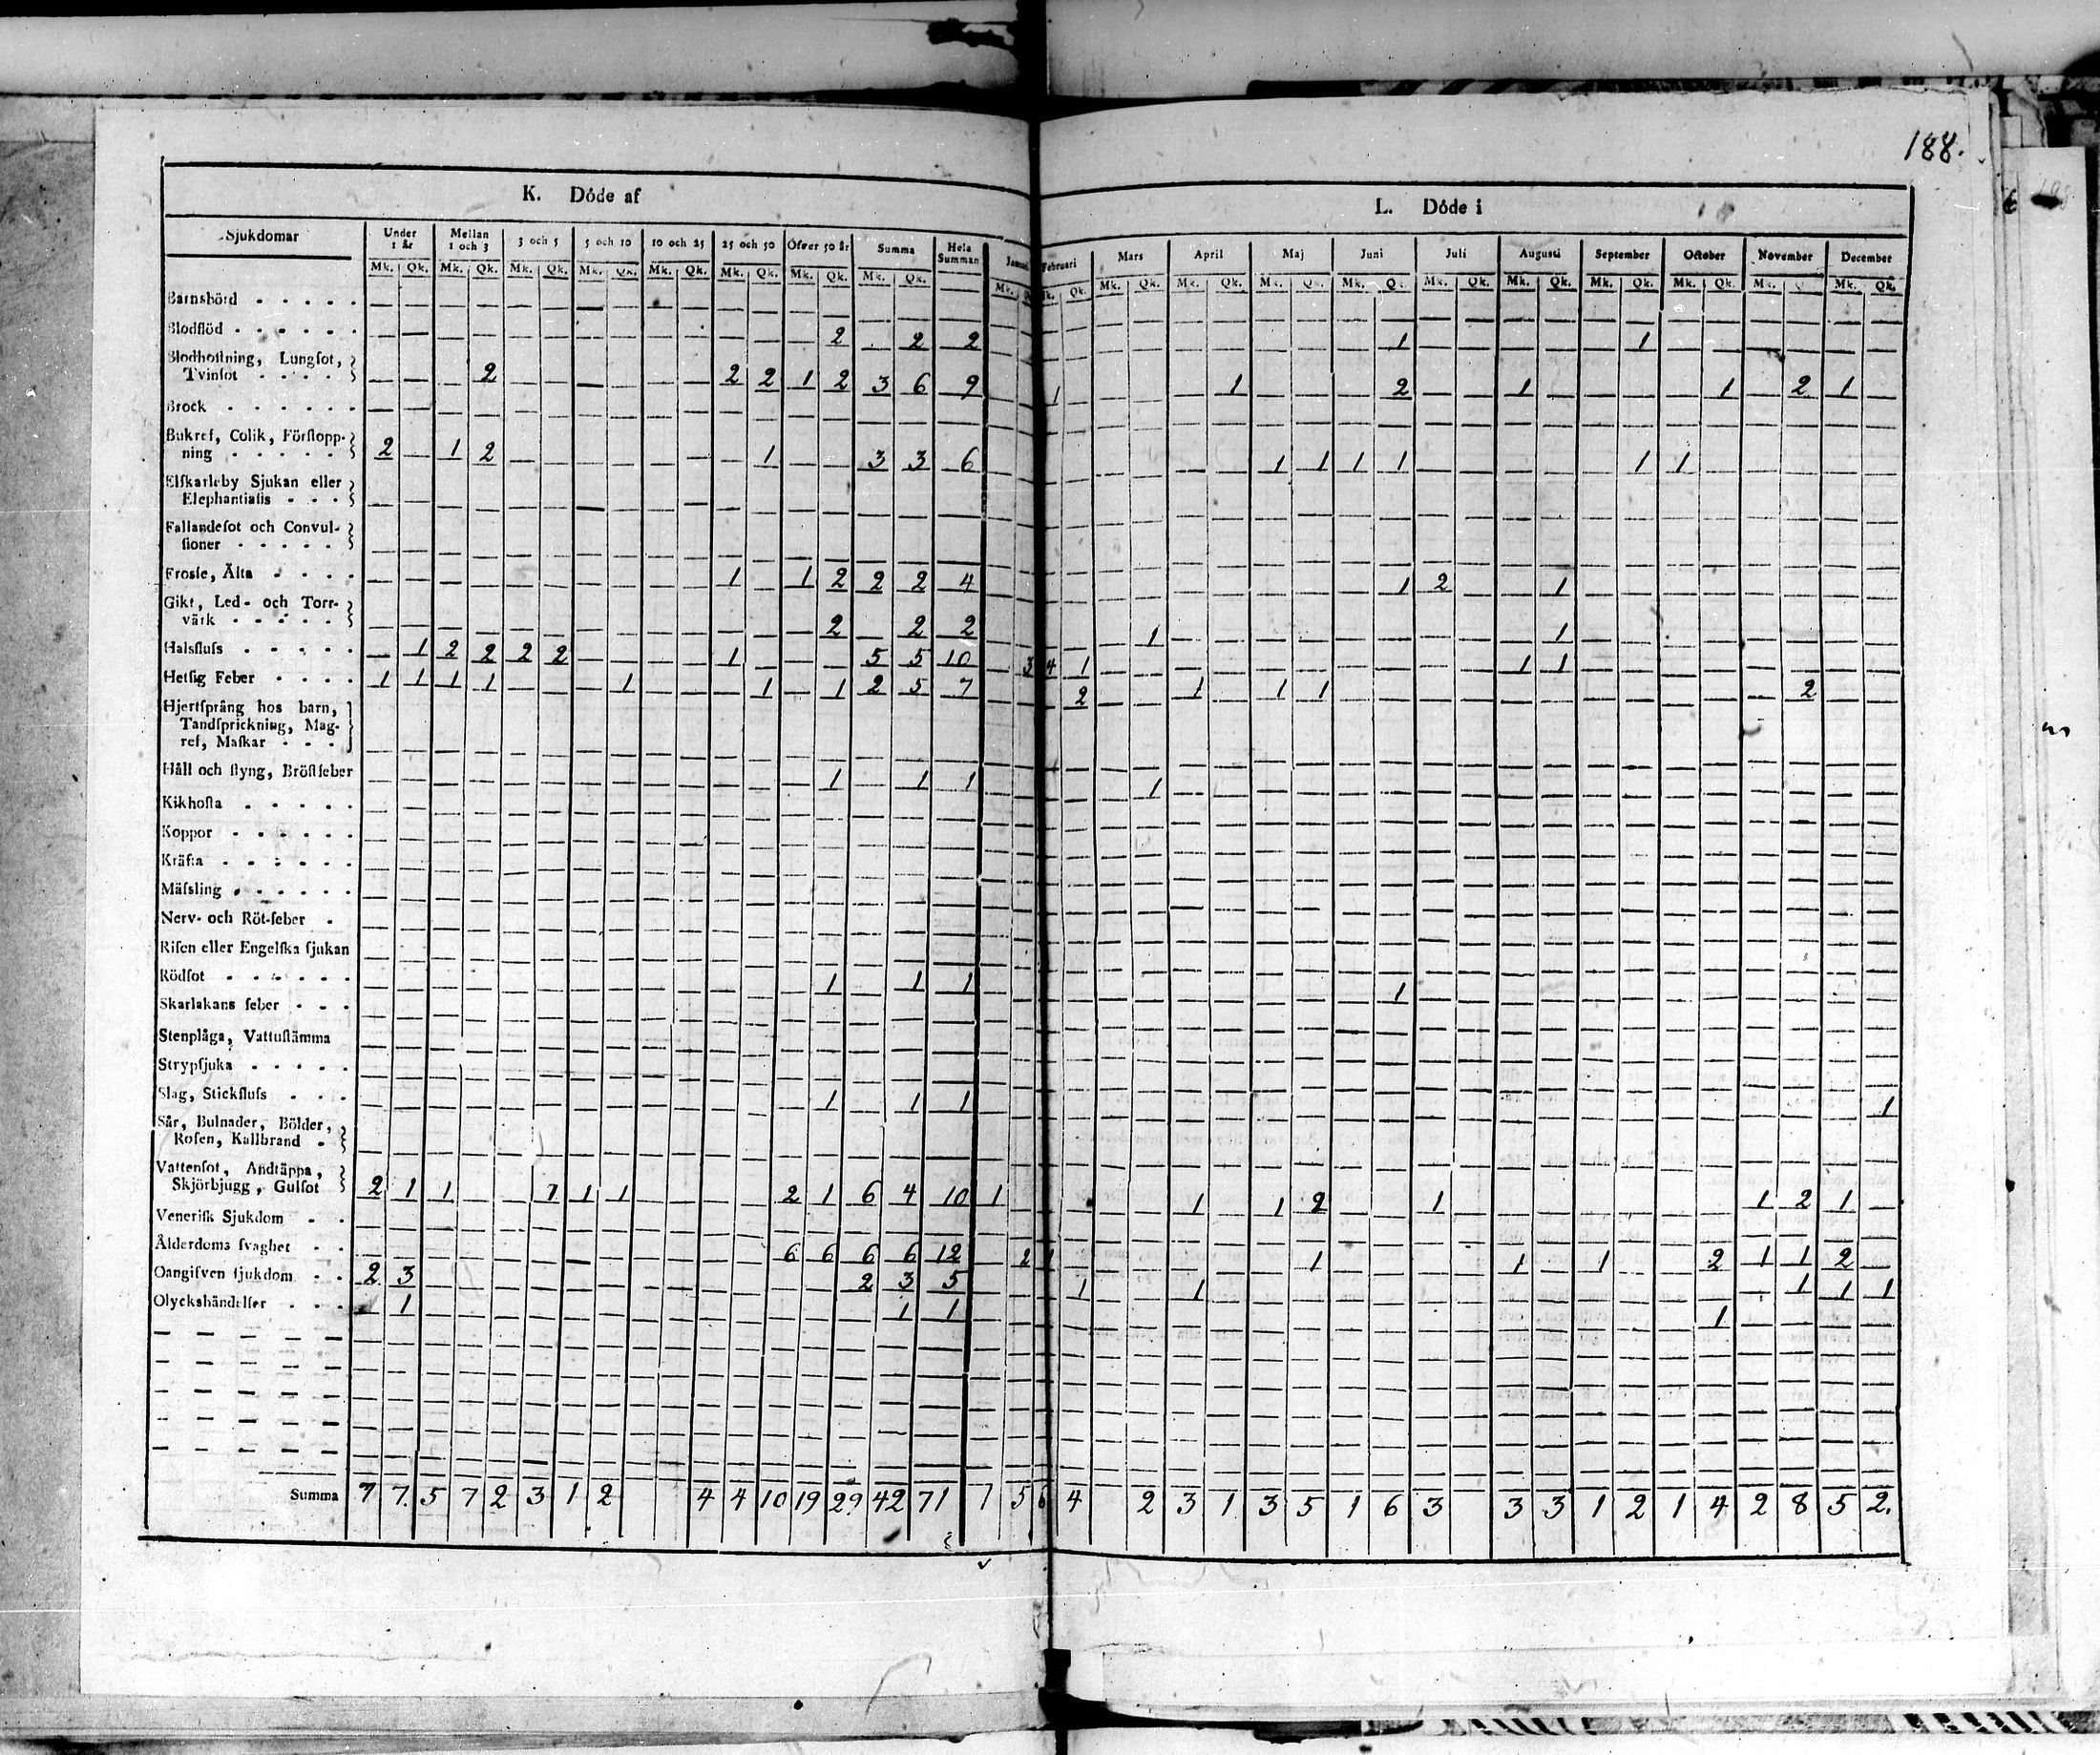 188.
K. Döde af
L. Döde i
Sjukdomar Under 1 år Mellan 1 och 3 3 och 5 5 och 10 10 och 25 25 och 50 Öfver 50 år Summa Hela Summan Januari Februari Mars April Maj Juni Juli Augusti September October November December
Mk. Qk. Mk. Qk. Mk. Qk. Mk. Qk. Mk. Qk. Mk. Qk. Mk. Qk. Mk. Qk. Mk. Qk. Mk. Qk. Mk. Qk. Mk. Qk. Mk. Qk. Mk. Qk. Mk. Qk. Mk. Qk. Mk. Qk. Mk. Qk. Mk. Qk.
Barnsbörd
Blodflöd 2 2 2 1 1
Blodhoſtning, Lungſot,
Tvinſot 2 2 2 1 2 3 6 9 1 1 2 1 1 2 1
Brock
Bukref, Colik, Förſtopp-
ning 2 1 2 1 3 3 6 1 1 1 1 1 1
Elſkarleby Sjukan eller
Elephantiaſis
Fallandeſot och Convul-
ſioner
Froſſe, Älta 1 1 2 2 2 4 1 2 1
Gikt, Led- och Torr-
värk 2 2 2 1 1
Halsfluſs 1 2 2 2 2 1 5 5 10 3 4 1 1 1
Hetſig Feber 1 1 1 1 1 1 1 2 5 7 2 1 1 1 2
Hjertſprång hos barn,
Tandſprickning, Mag-
ref, Maſkar
Håll och ſtyng, Bröſtfeber 1 1 1 1
Kikhoſta
Koppor
Kräfta
Mäſsling
Nerv- och Röt-feber
Riſen eller Engelſka ſjukan
Rödſot 1 1 1 1
Skarlakans feber
Stenplåga, Vattuſtämma
Strypſjuka
Slag, Stickfluſs 1 1 1 1
Sår, Bulnader, Bölder,
Roſen, Kallbrand
Vattenſot, Andtäppa,
Skjörbjugg, Gulſot 2 1 1 1 1 1 2 1 6 4 10 1 1 1 2 1 1 2 1
Veneriſk Sjukdom
Ålderdoms ſvaghet 6 6 6 6 12 2 1 1 1 1 2 1 1 2
Oangifven ſjukdom 2 3 2 3 5 1 1 1 1 1
Olyckshändelſer 1 1 1 1
Summa 7 7 5 7 2 3 1 2 4 4 10 19 29 42 71 1 5 6 4 2 3 1 3 5 1 6 3 3 3 1 2 1 4 2 8 5 2.